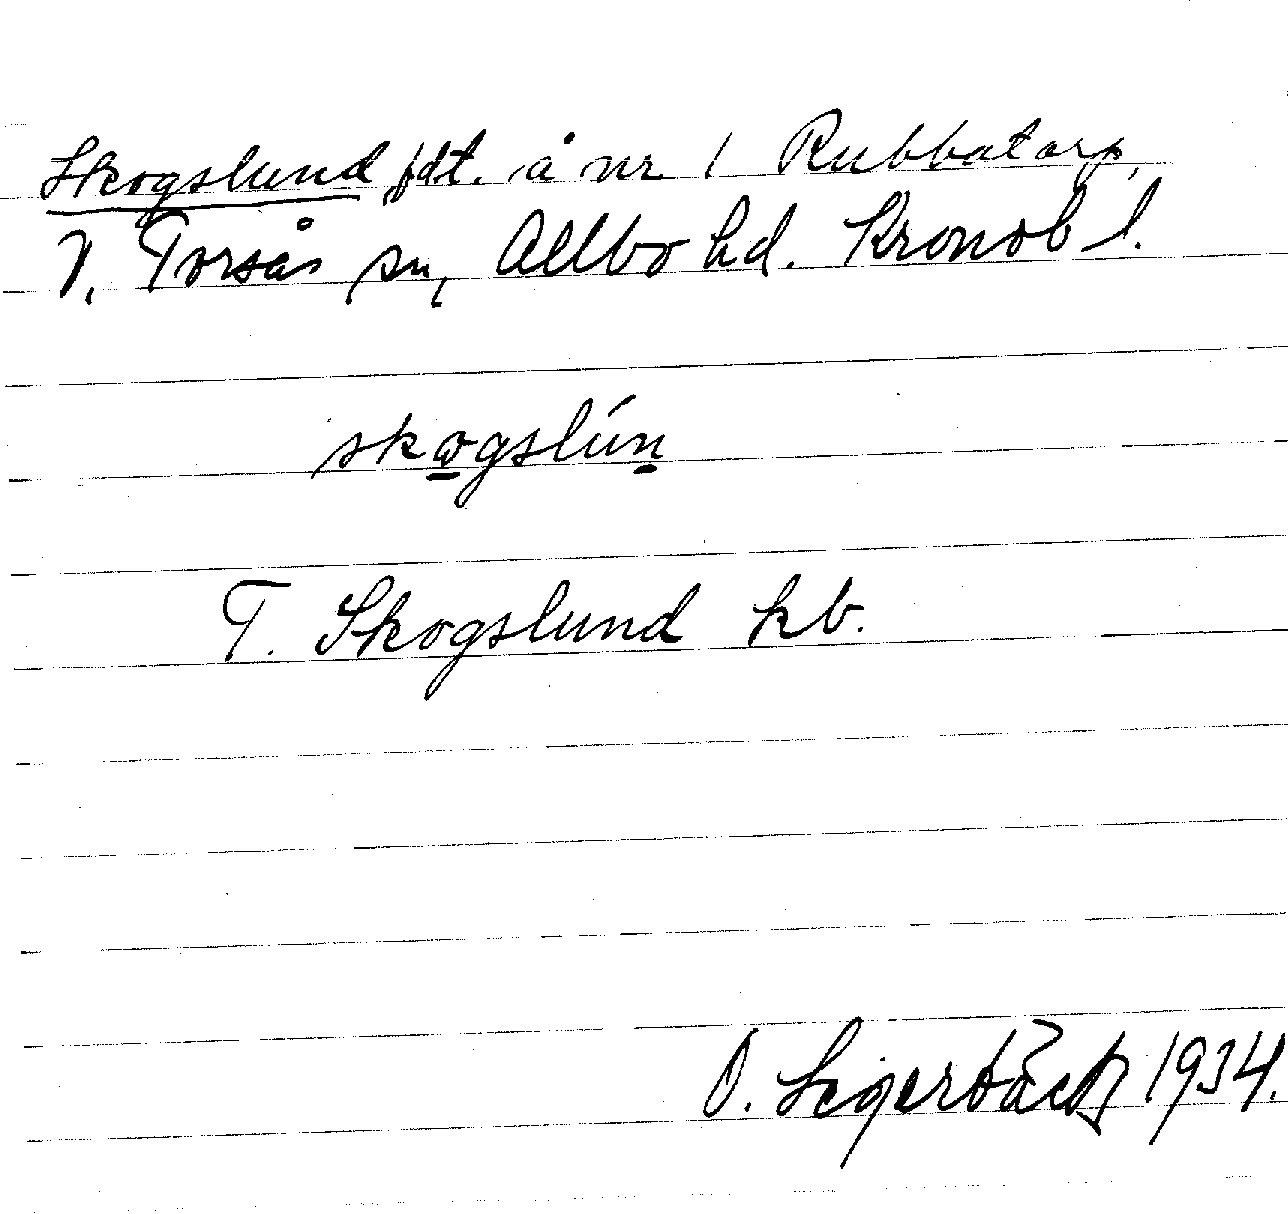 Skogslund fdt. å nr 1 Rubbatorp,
V. Torsås sn, Allbo hd. Kronob l.
skogslún
T. Skogslund kb.
O. Segerbäck 1934.